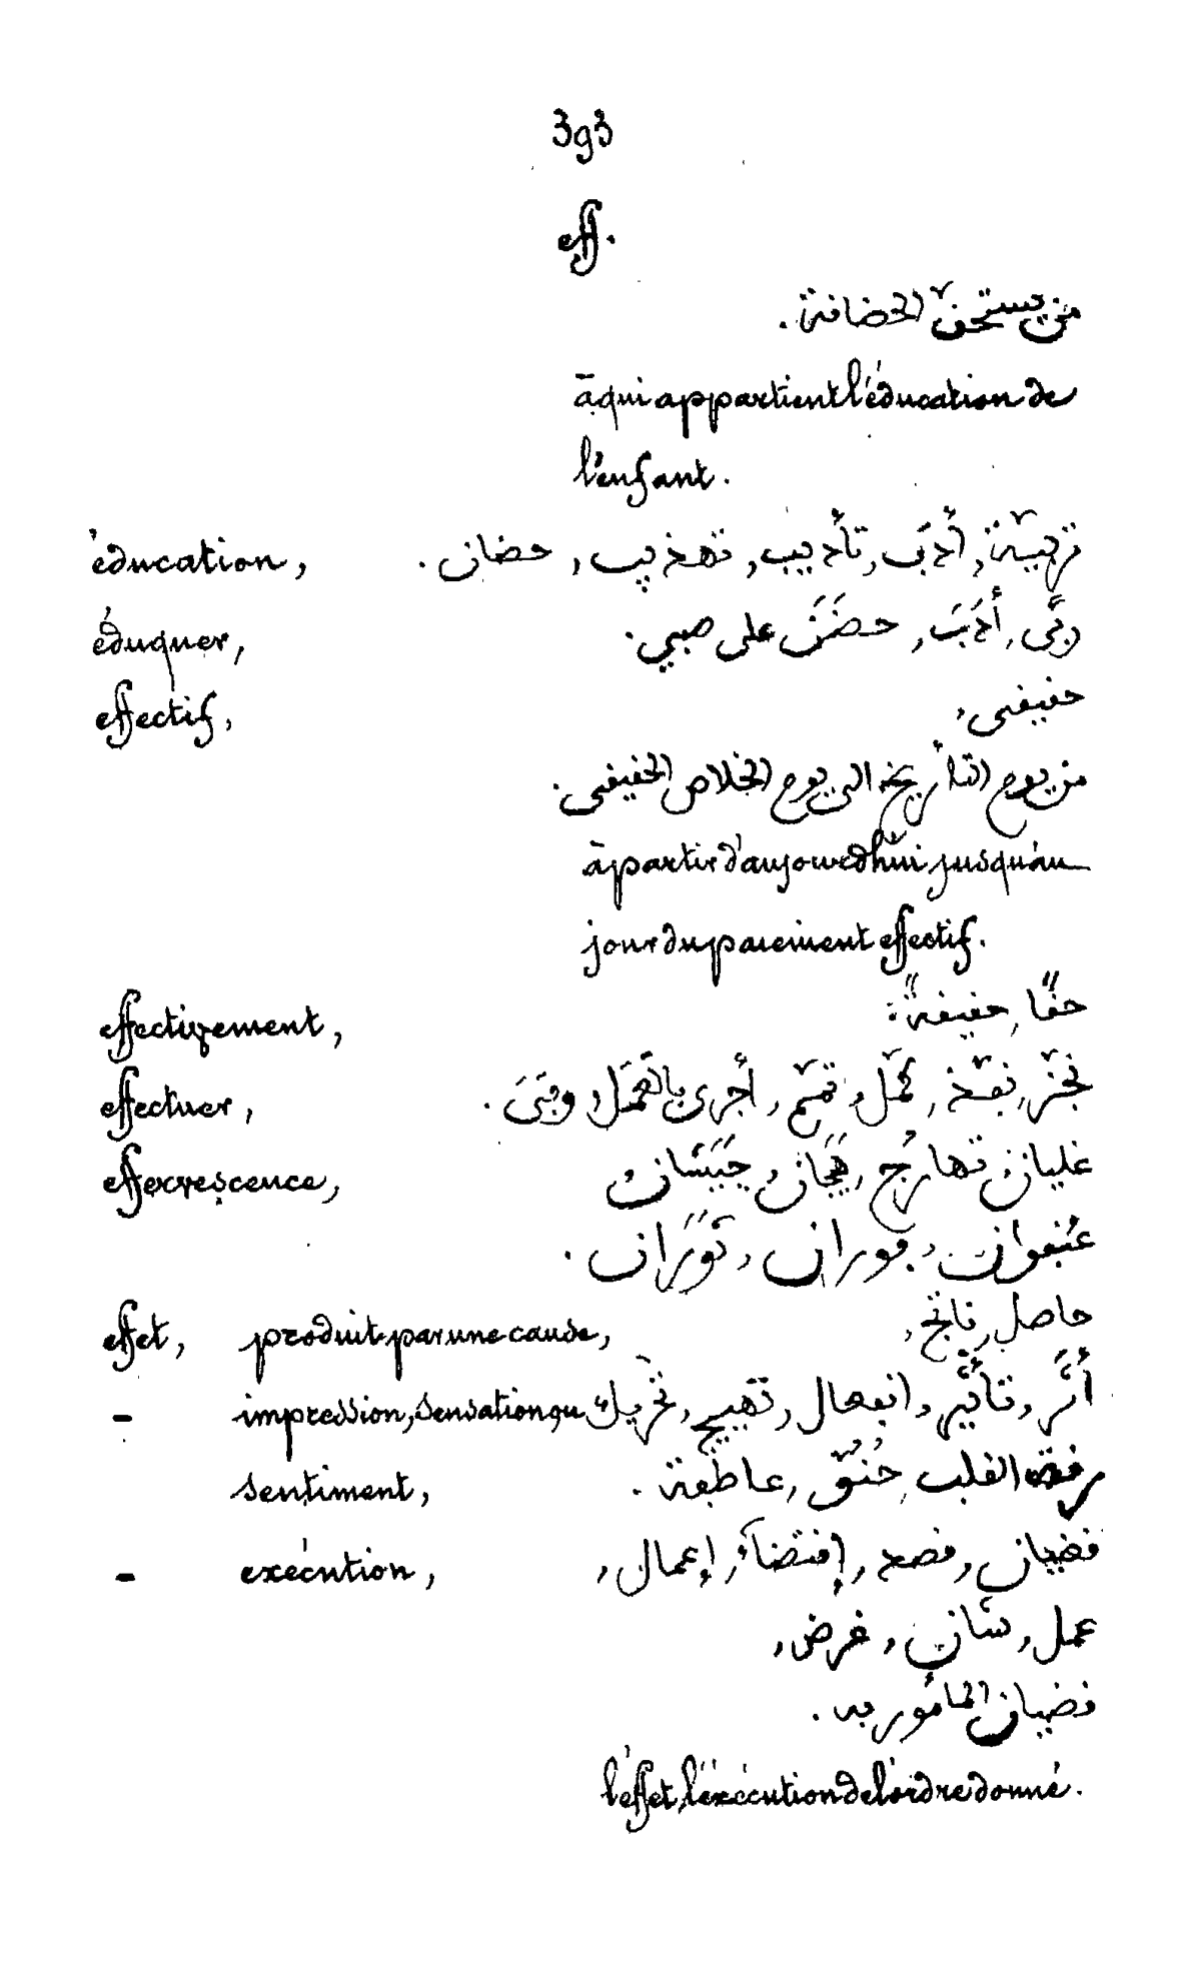 393
eff.
من يستحقّ الحضانة.
à qui appartient l'éducation de
l'enfant.
éducation, تربيّة, أدَب, تأديب, تهذيب, حضان.
éduquer, ربَّى, أدَّبَ, حضَنَ على صبي.
effectif, حقيقي,
من يوم التأريخ الى يوم الخلاص الحقيقي.
à partir d'aujourd'hui jusqu'au
jour du paiement effectif.
effectivement, حقًّا, حقيقةً.
effectuer, نجّز, نفّذ, كمّل, تمّم, أجرى بالعَمَل, وفَى.
effervescence, غليان, تهارُج, هَيَجَان, جَيَشَان,
عُنفوان, فوران, ثَوَرَان.
effet, produit par une cause, حاصل, ناتج,
- impression, sensation, ou أثَّر, تأثّير, انفعال, تهييج, تحريك
sentiment, رقة القلب, حُنُوّ, عاطفة.
- exécution, قضيان, قصد, إقتضاء, إعمال,
عمل, شان, غرض,
قضيان المأمور به.
l'effet, l'exécution de l'ordre donné.